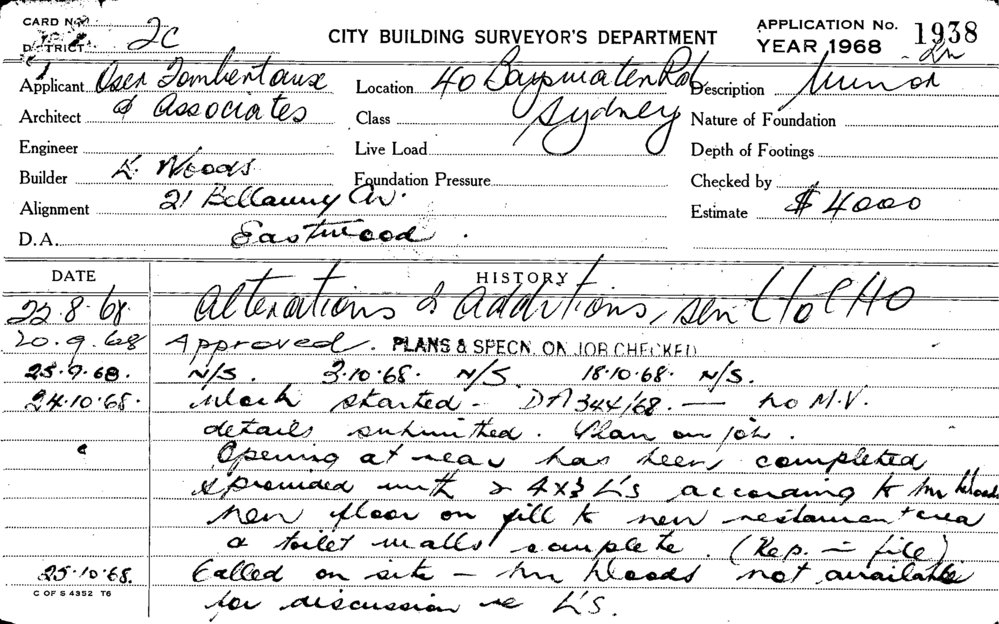 CARD No.
DISTRICT 2C
CITY BUILDING SURVEYOR'S DEPARTMENT
APPLICATION No. 1938
YEAR 1968
Applicant Oser Fombertaux
Location 40 Bayswater Rd
Description Minor
Architect & Associates
Class Sydney
Nature of Foundation
Engineer
Live Load
Depth of Footings
Builder K. Woods
Foundation Pressure
Checked by
Alignment 21 Bellamy Av.
Estimate $4000
D.A. Eastwood.
DATE HISTORY
22.8.68. Alterations & additions, sent to CHO
20.9.68 Approved. PLANS & SPECN. ON JOB CHECKED
25.9.68. N/S. 3.10.68. N/S. 18.10.68. N/S.
24.10.68. Work started - DA 344/68. — no M.V.
details submitted. Plan on job.
Opening at rear has been completed
& provided with 2 4x3 L's according to Mr Woods
New floor on fill to new restaurant area
& toilet walls complete. (Rep. in file)
25.10.68. Called on site - Mr Woods not available
for discussion re L's.
C OF S 4352 T6